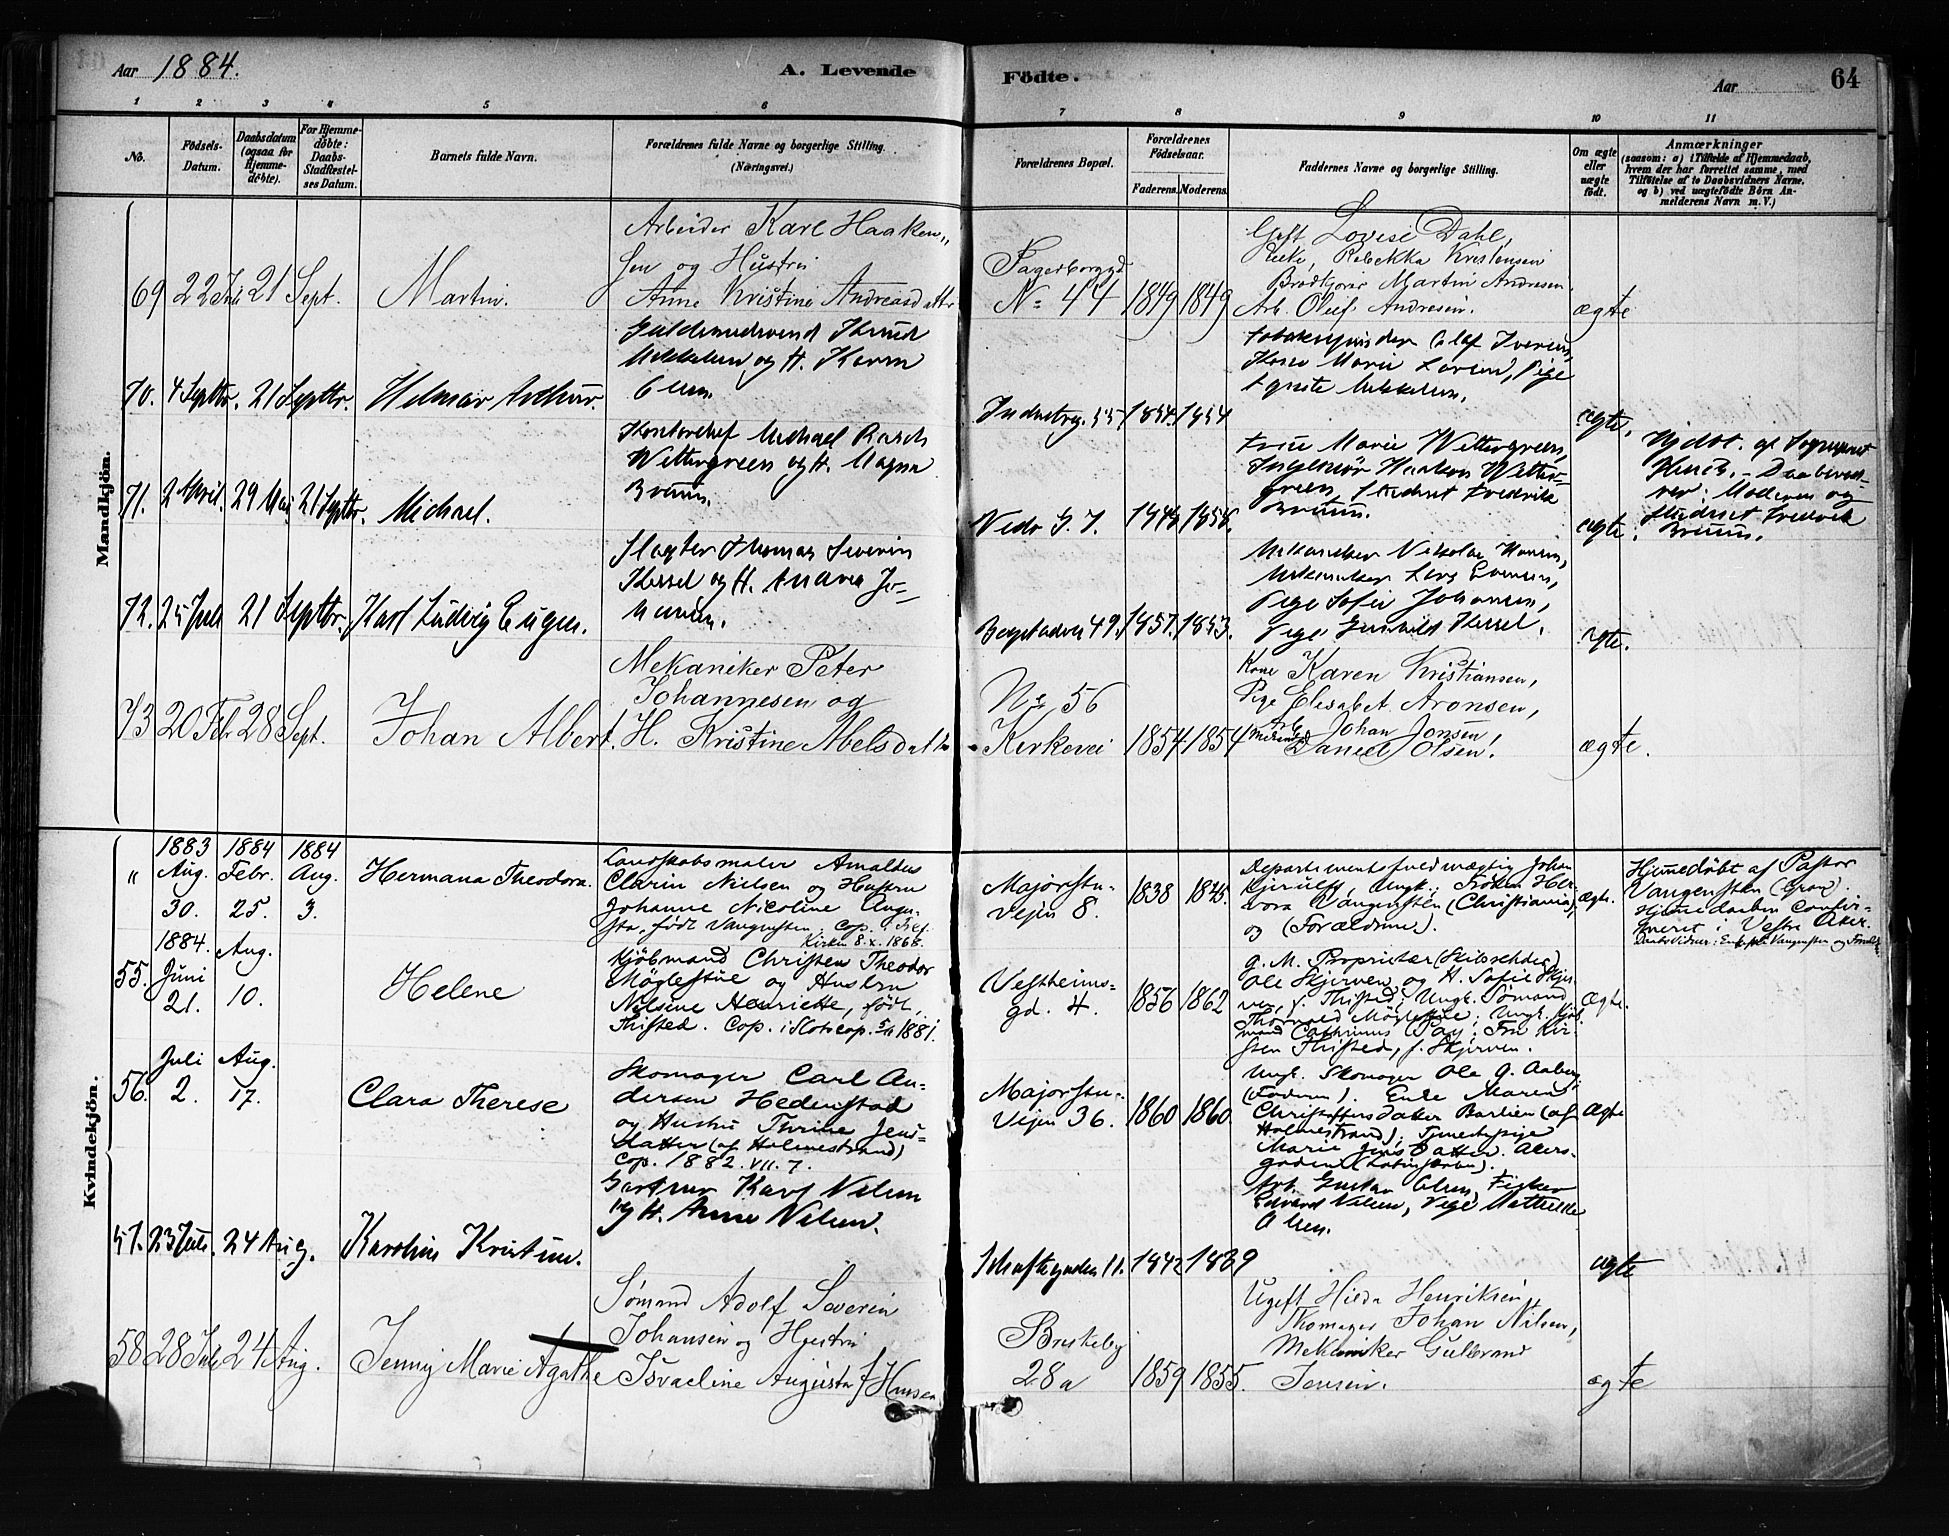 Aar 1884.
A. Levende
Födte.
Aar
64
1 2 3 4 5 6 7 8 9 10 11
No.
Födsels-Datum.
Daabsdatum (ogsaa for Hjemme-döbte).
For Hjemme-döbte: Daabs-Stadfæstel-ses Datum.
Barnets fulde Navn.
Forældrenes fulde Navne og borgerlige Stilling.
(Næringsvei.)
Forældrenes Bopæl.
Forældrenes Födselsaar.
Faderens. Moderens.
Faddernes Navne og borgerlige Stilling.
Om ægte eller uægte födt.
Anmærkninger
(saasom: a) i Tilfælde af Hjemmedaab,
hvem der har forrettet samme, med
Tilföielse af to Daabsvidners Navne,
og b) ved uægtefödte Börn An-
melderens Navn m. V.)
Mandkjön.
69 22 Juli 21 Sept. Martin.
Arbeider Karl Haaken-
sen og Hustru
Anne Kristine Andreasdatter
Fagerborggd
No 44 1849 1849
Ugift Lovise Dahl,
Rebekka Kristensen
Brødkjører Martin Andresen,
Arb. Oluf Andresen.
ægte
70. 4 Septbr. 21 Septbr. Hilmar Arthur.
Guldsmedsvend Knud
Mikkelsen og H. Karen
Olsen.
Industrig. 55 1854. 1854
Tobakspinder Olaf Iversen,
Kone Marie Larsen, Pige
Agnete Mikkelsen.
ægte.
71. 2 April. 29 Mai 21 Septbr. Michael.
Kontorchef Michael Rasch
Wittergreen og H. Magna
Bruun.
Nedr G. 7. 1848 1858.
Frue Marie Wittergreen,
Ingeniør Haakon Witter-
green, Student Fredrik
Bruun.
ægte.
Hjdbt. af Sognepræst
Daabsvid-
ner: Moderen og
Student Fredrik
Bruun.
72. 25 Juli 21 Septbr. Karl Ludvig Eugen.
Slagter Thomas Severin
Kessel og H. Andrea Jo-
hansen.
Bogstadvei 49. 1857. 1853.
Mekaniker Nikolai Hansen,
Mekaniker Lars Evensen,
Pige Sofie Johansen,
Pige Gunhild Kessel.
ægte.
73 20 Feb 28 Sept. Johan Albert.
Mekaniker Peter
Johannesen og
H. Kristine Abelsdatter
No 56
Kirkevei 1854 1854
Kone Karen Kristiansen,
Pige Elisabet Aronsen,
Arb. Johan Jonsen,
Daniel Olsen.
ægte.
Kvindekjön.
" 1883 Aug. 30. 1884 Febr. 25. 1884 Aug. 3. Hermana Theodora.
Landskabsmaler Amaldus
Clarin Nielsen og Hustru
Johanne Nicoline Augu-
sta, født Vangensten, Cop. i Tref.
Kirken 8.x.1868.
Majorstu-
vejen 8. 1838 1845.
Departementsfuldmægtig Johan
Kjerulf, Ungk.; Frøken Her-
vora Vangensten (Christiania),
og (Forældrene).
ægte.
Hjemmedøbt af Pastor
Vangensten (Gran).
Hjemmedaaben Confir-
meret i Vestre Aker.
55. 1884. Juni 21. Aug. 10. Helene
Kjøbmand Christen Theodor
Møglestue og Hustru
Nilsine Henriette, født
Thifsted. Cop. i Slotscap. 5/11 1881.
Vestheims-
gd. 4. 1856 1862
G. M. Proprietær (Skibsreder)
Ole Skjerven og H. Sofie Skjer-
ven, f. Thifsted; Ungk. Sømand
Thorvald Møglestue; Ungk. Kjøb-
mand Cathrinus Pay; Fru Kir-
sten Thifsted, f. Skjerven.
Ægte.
56. Juli 2. Aug. 17. Clara Therese
Skomager Carl An-
dersen Hedenstad
og Hustru Thrine Jens-
datter (af Holmestrand)
Cop. 1882.VII.7.
Majorstu-
Vejen 36. 1860 1860
Ungk. Skomager Ole G. Aaberg,
(Faderen). Enke Maren
Christoffersdatter Barlien (af
Holmestrand); Tjenestepige
Marie Jensdatter. Akers-
gaden
Ægte
57. 23 Juli. 24 Aug. Karoline Kristine.
Gartner Karl Nilsen
og H. Anne Nilsen.
Schaftegaden 11. 1842 1839
Arb. Gustav Olsen, Fisker
Edvard Nilsen, Pige Mathilde
Olsen.
ægte
58 28 Juli 24 Aug. Jenny Marie Agathe
Sømand Adolf Severin
Johansen og Hustru
Israeline Augusta f. Hansen
Briskeby
28a 1859 1855.
Ugift Hilda Henriksen,
Thomager Johan Nilsen,
Mekaniker Gulbrand
Jensen.
ægte